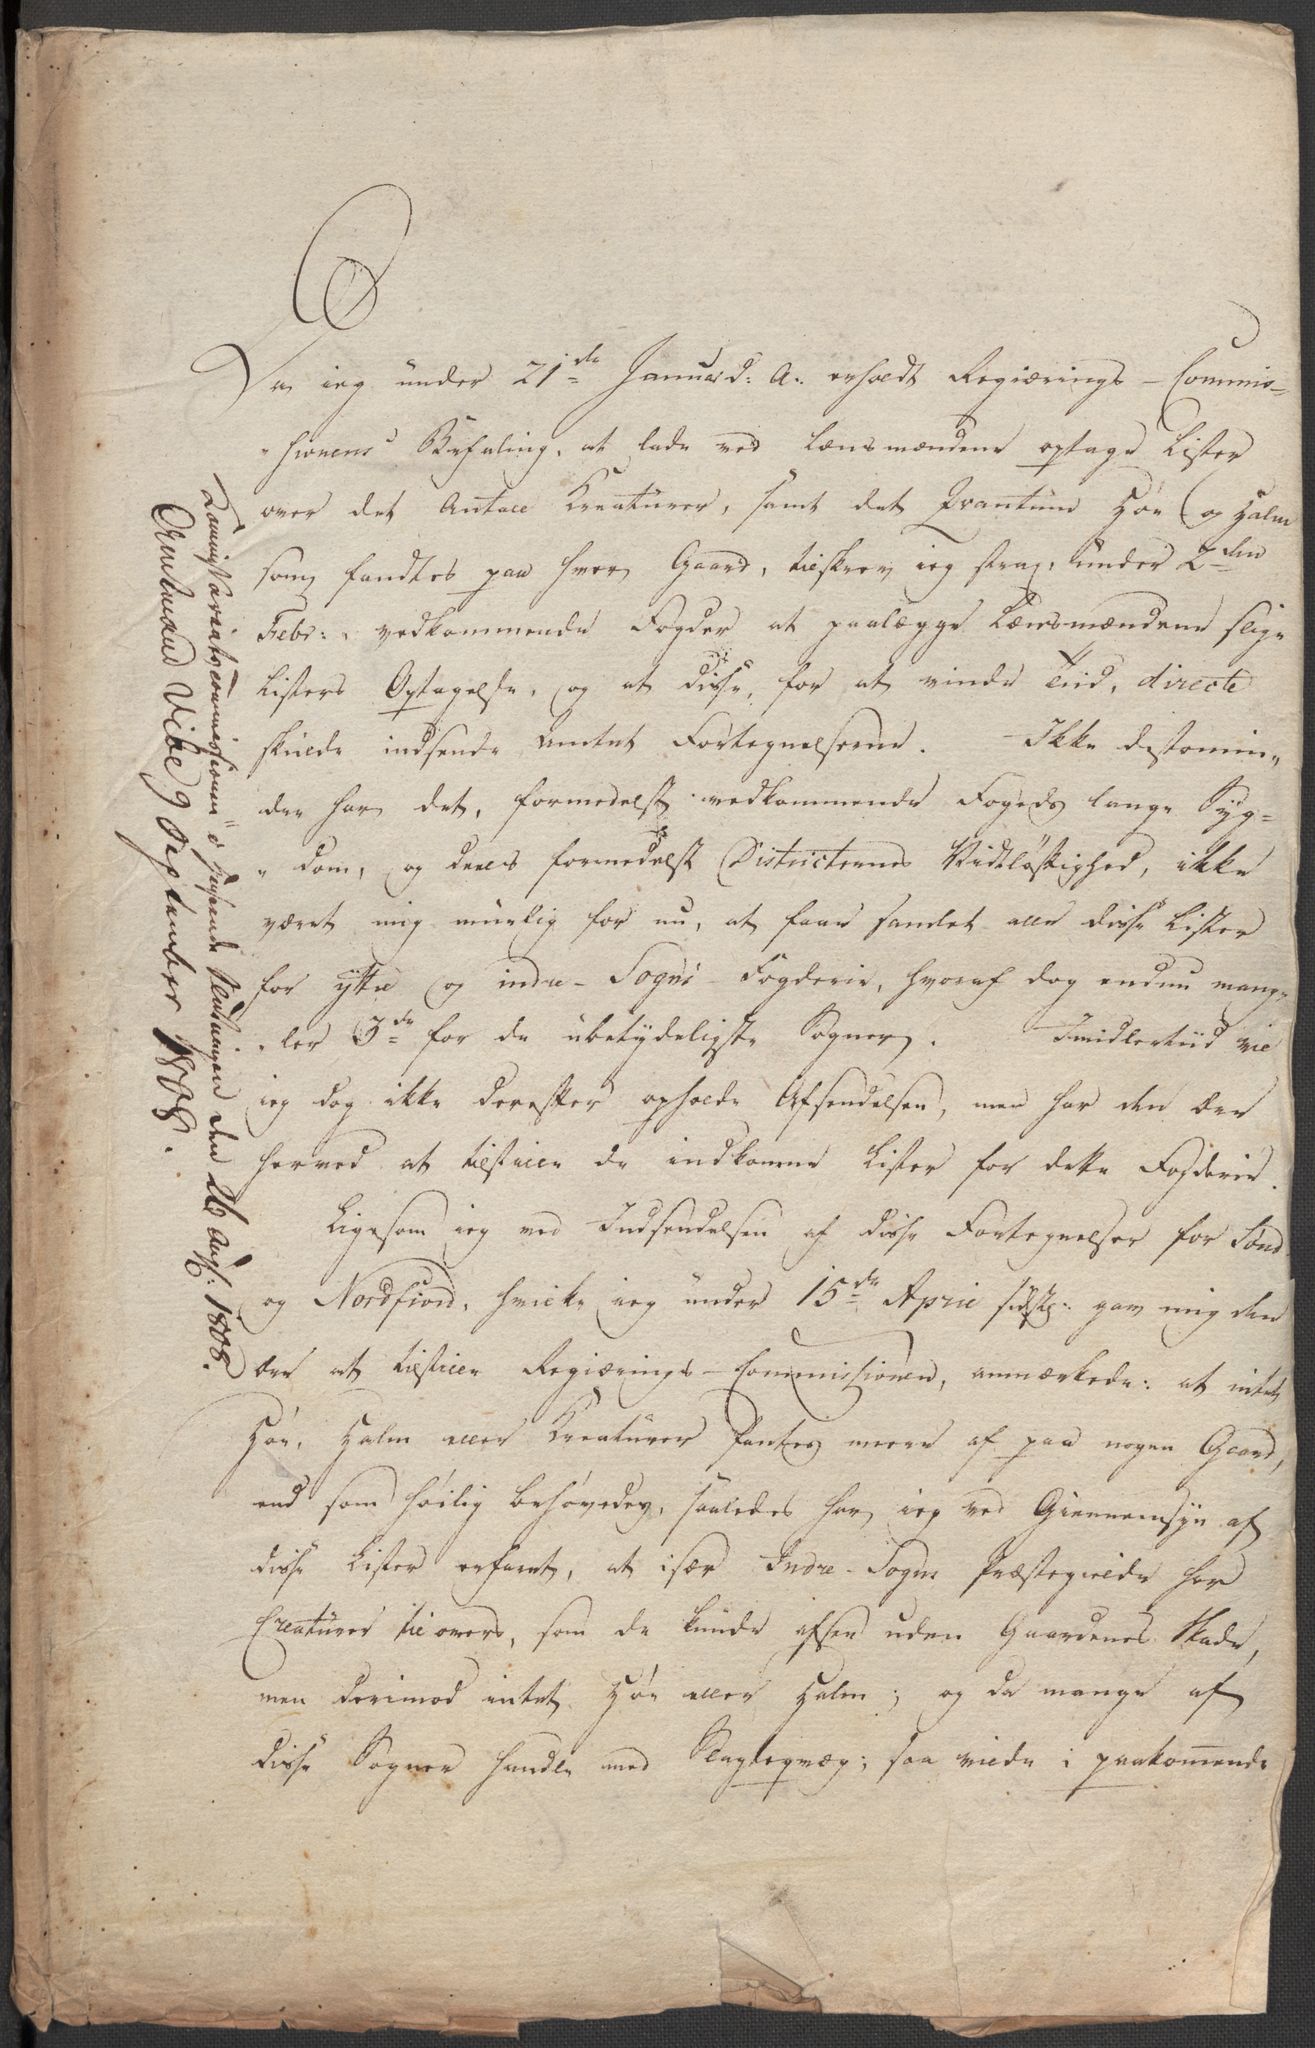 Da ieg under 21de Januar d: A: erholdt Regierings-Commis-
sionens Befaling, at lade ved Lænsmændene optage Lister
over det Antall Kreaturer, samt det Qvantum Høe og Halm
som fandtes paa hver Gaard, tilskrev ieg strax, under 2den
Febr: vedkommende Fogder at paalægge Lænsmændene slige
Listers Optagelse, og at disse, for at vinde Tiid, directe
skulde indsende Amtet Fortegnelserne. Ikke destomin-
der har det, formedelst vedkommende Fogeds lange Syg-
dom, og deels formedelst Districternes Vidtløftighed, ikke
været mig muelig før nu, at faae samlet alle disse Lister
for ÿttre og indre-Sogns Fogderie, hvoraf dog endnu mang-
ler 3de for de ubetydeligste Sogner. Imidlertiid vil
ieg dog ikke derefter opholde Afsendelsen, men har den Ære
herved at tilstille de indkomne Lister for dette Fogderie.
Ligesom ieg ved Indsendelsen af disse Fortegnelser for Sønd
og Nordfiord, hvilke ieg under 15de April sidstl: gav mig den
Ære at tilstille Regierings-Commissionen, anmærkede: at intet
Høe, Halm eller Kreaturer fantes meere af paa nogen Gaard,
end som høilig behøvedes, saaledes har ieg ved Giennemsyn af
disse Lister erfaret, at især Indre-Sogns Præstegielde har
Creaturer tilovers, som de kunde afsee uden Gaardenes Skade,
men derimod intet Høe eller Halm; og da mange af
disse Sogner handle med Slagteqvæg; saa vilde i paakommende
Commissariatscommissionen i Henseende Slutningen den 26 Augs: 1808.
Amtmand Vibe 9 September 1808.